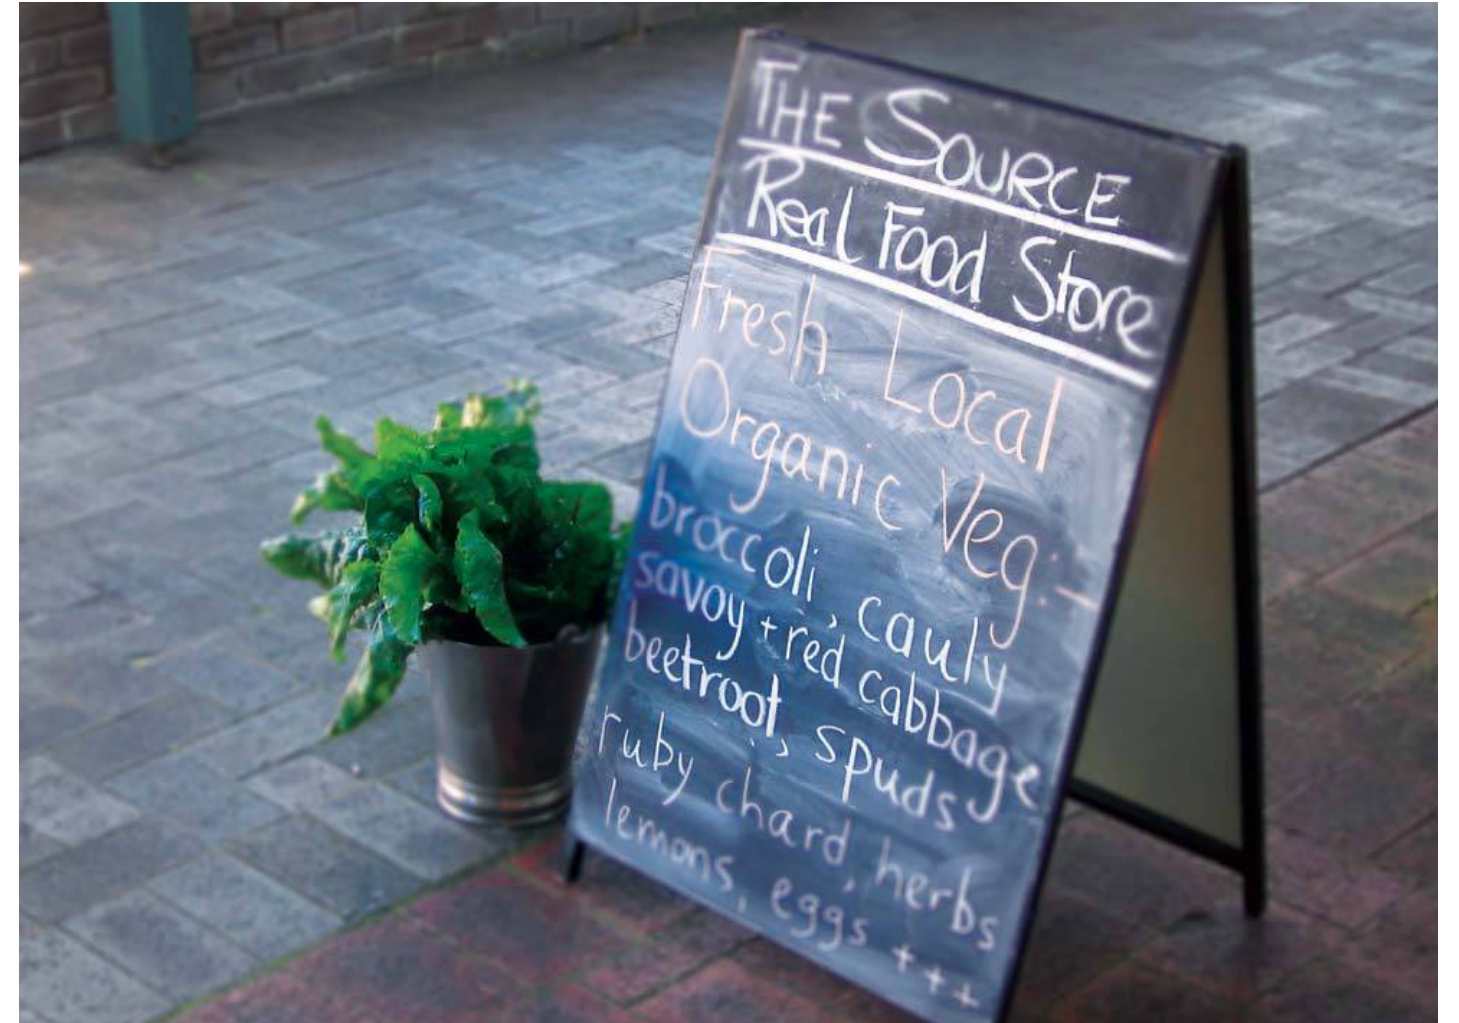 THE SOURCE
Real Food Store
Fresh Local
Organic Veg:-
broccoli, cauly
savoy + red cabbage
beetroot, spuds
ruby chard, herbs
lemons, eggs +++